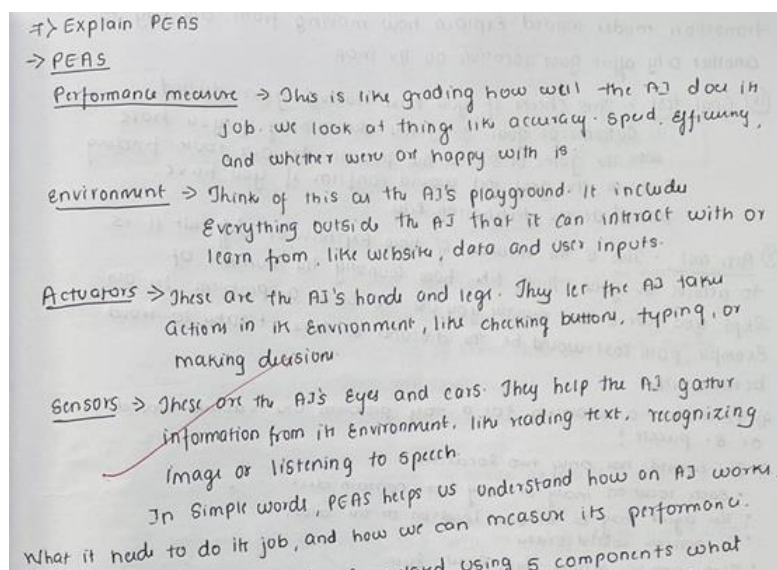 7> Explain PEAS
→ PEAS
Performance measure → This is like grading how well the AI doe in
job. we look at thing like accuracy. speed, efficiency,
and whether were or happy with is.
environment → Think of this as the AI's playground. It include
Everything outside the AI that it can intract with or
learn from, like website, data and user inputs.
Actuators → These are the AI's hands and legs. They let the AI take
actions in it Environment, like checking button, typing, or
making decision.
Sensors → These are the AI's Eyes and ears. They help the AI gather
information from it Environment, like reading text, recognizing
image or listening to speech.
In Simple words, PEAS helps us understand how an AI works.
What it need to do it job, and how we can measure its performance.
using 5 components what